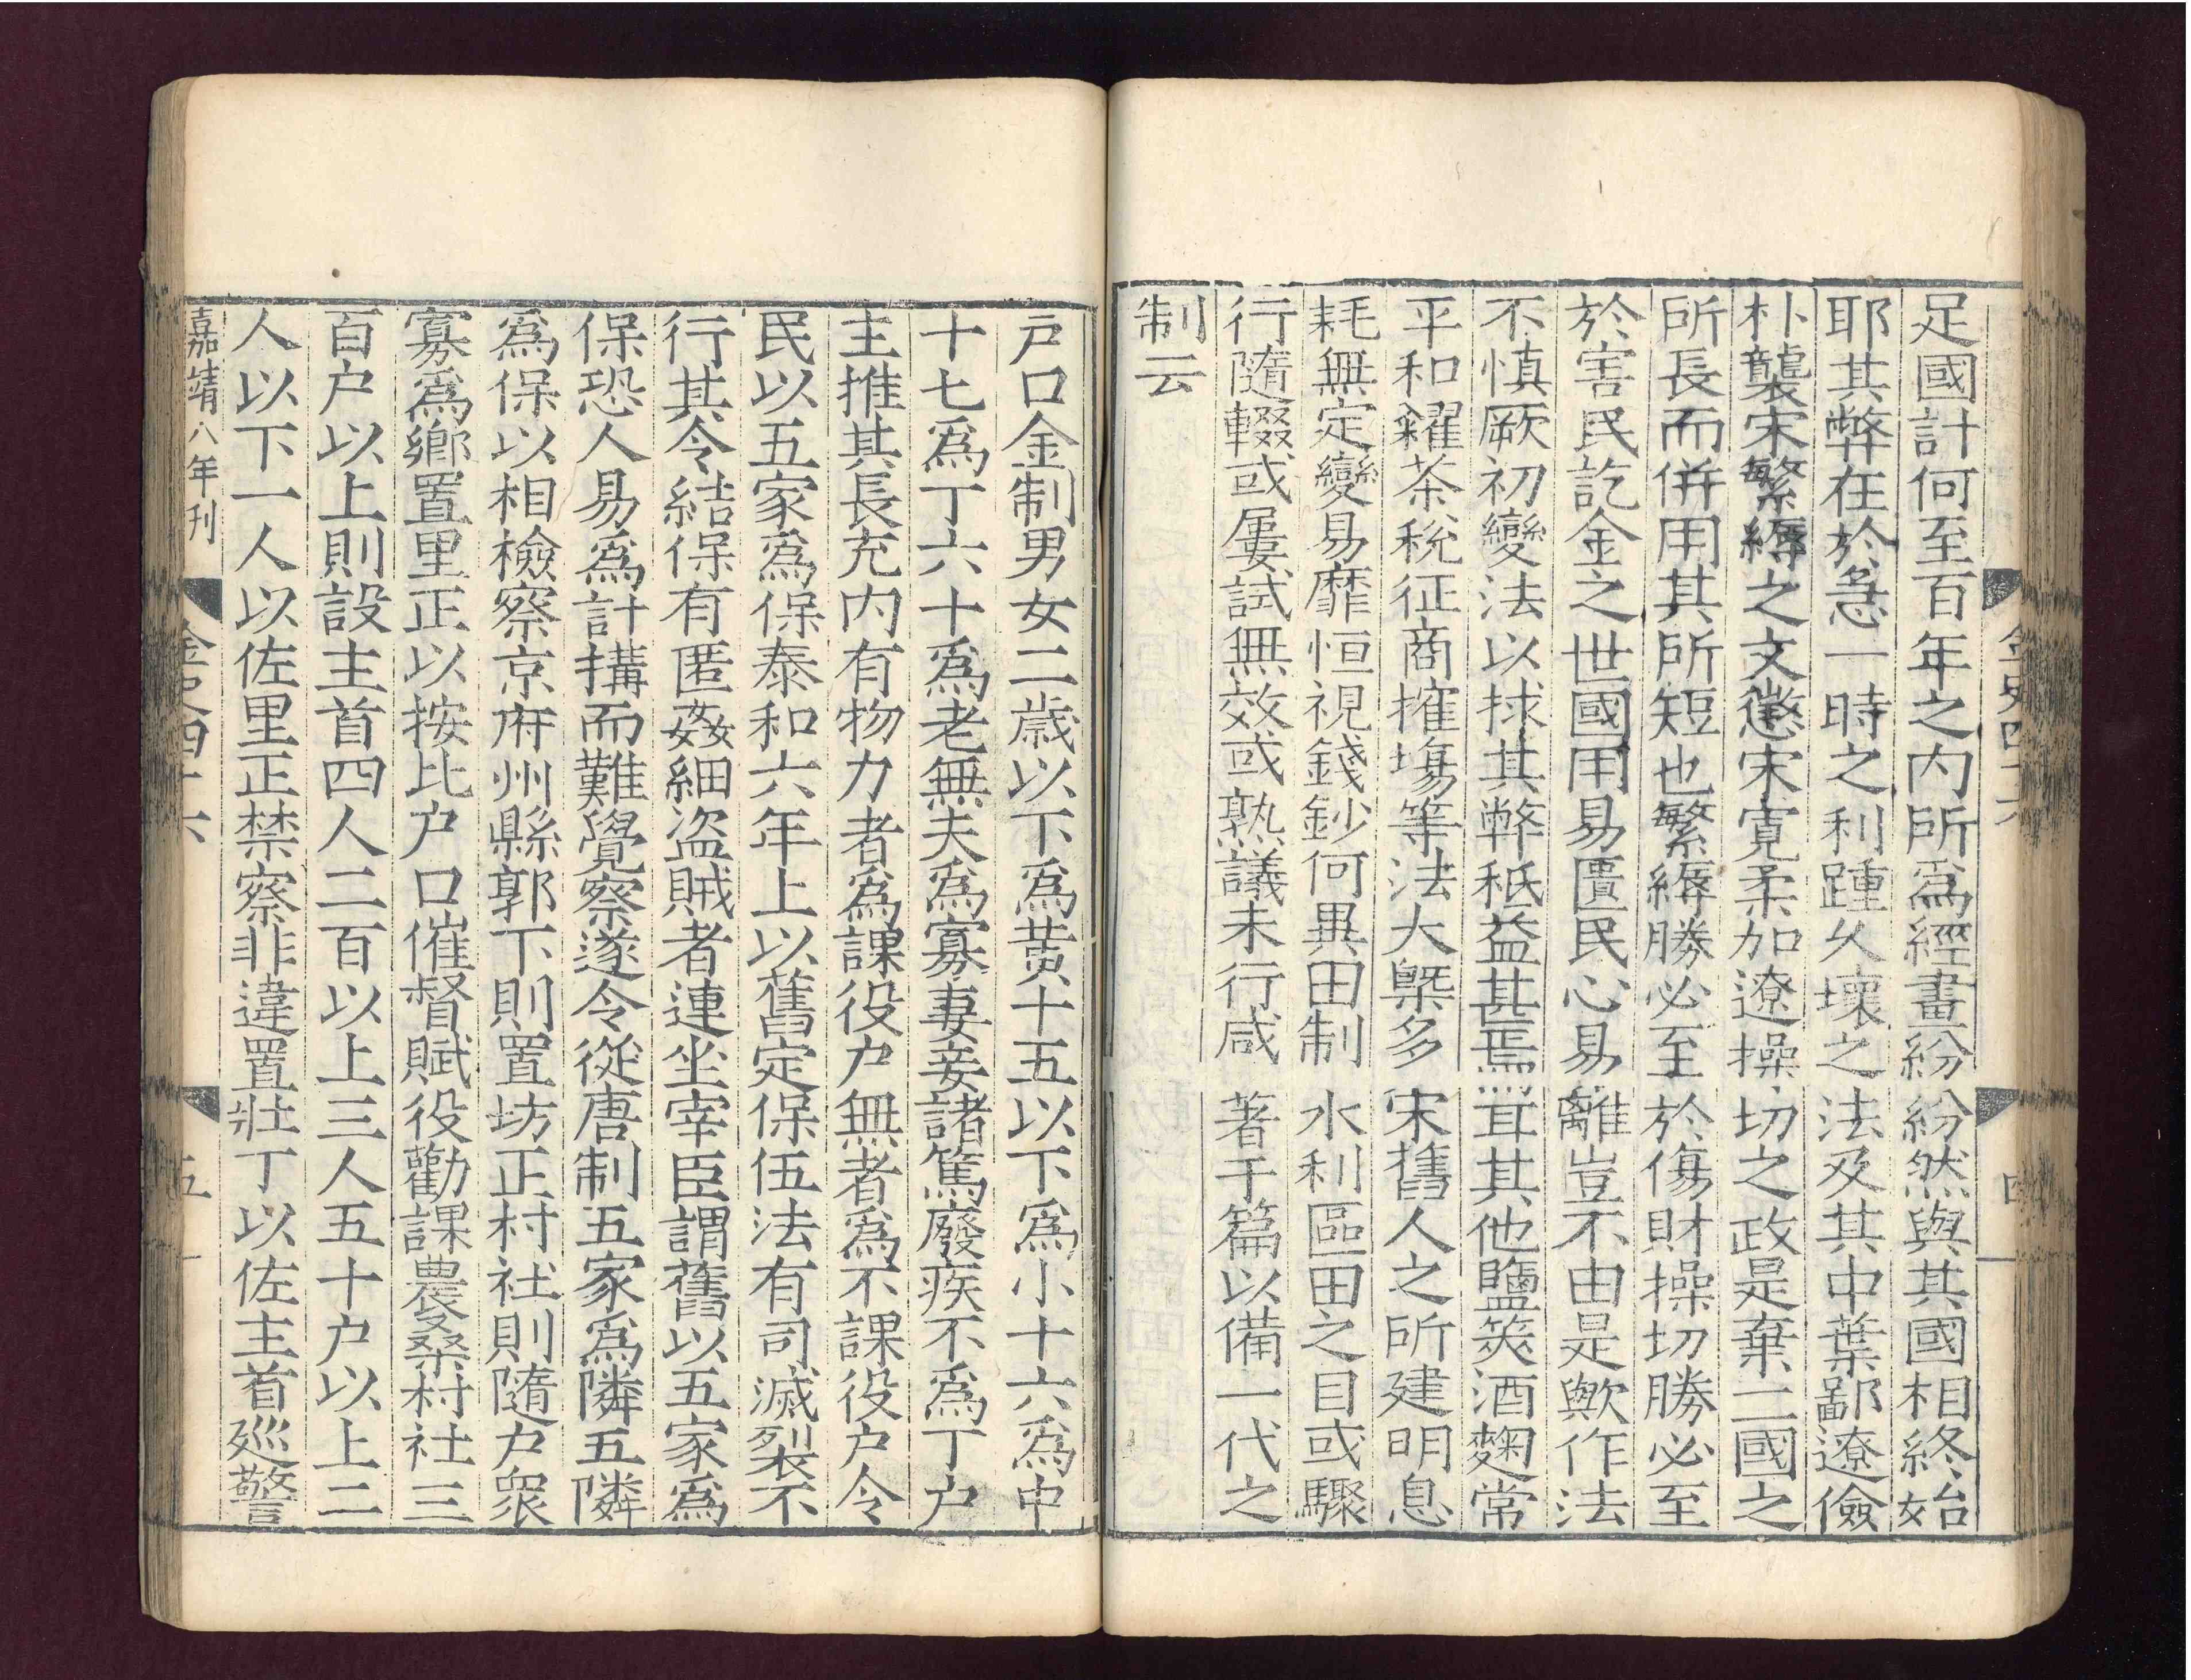 足國計何至百年之内所爲經畫紛紛然與其國相終始
耶其弊在於急一時之利踵乆壞之法及其中葉鄙遼儉
朴襲宋繁縟之文懲宋寛柔加遼操切之政是棄二國之
所長而併用其所短也繁縟勝必至於傷財操切勝必至
於害民訖金之世國用易匱民心易離豈不由是歟作法
不慎厥初變法以捄其弊秪益甚焉耳其他鹽筴酒麴常
平和糴茶稅征商搉塲等法大槩多宋舊人之所建明息
耗無定變易靡恒視錢鈔何異田制水利區田之目或驟
行隨輟或屢試無效或熟議未行咸著于篇以備一代之
制云
金史四十六
四
户口金制男女二歳以下爲黄十五以下爲小十六爲中
十七爲丁六十爲老無夫爲寡妻妾諸篤廢疾不爲丁户
主推其長充内有物力者爲課役户無者爲不課役户令
民以五家爲保泰和六年上以舊定保伍法有司滅裂不
行其令結保有匿姦細盗賊者連坐宰臣謂舊以五家爲
保恐人易爲計搆而難覺察遂令從唐制五家爲隣五隣
爲保以相檢察京府州縣郭下則置坊正村社則隨户衆
寡爲鄉置里正以按比户口催督賦役勸課農桑村社三
百户以上則設主首四人二百以上三人五十户以上二
人以下一人以佐里正禁察非違置壯丁以佐主首廵警
嘉靖八年刊
金史四十六
五